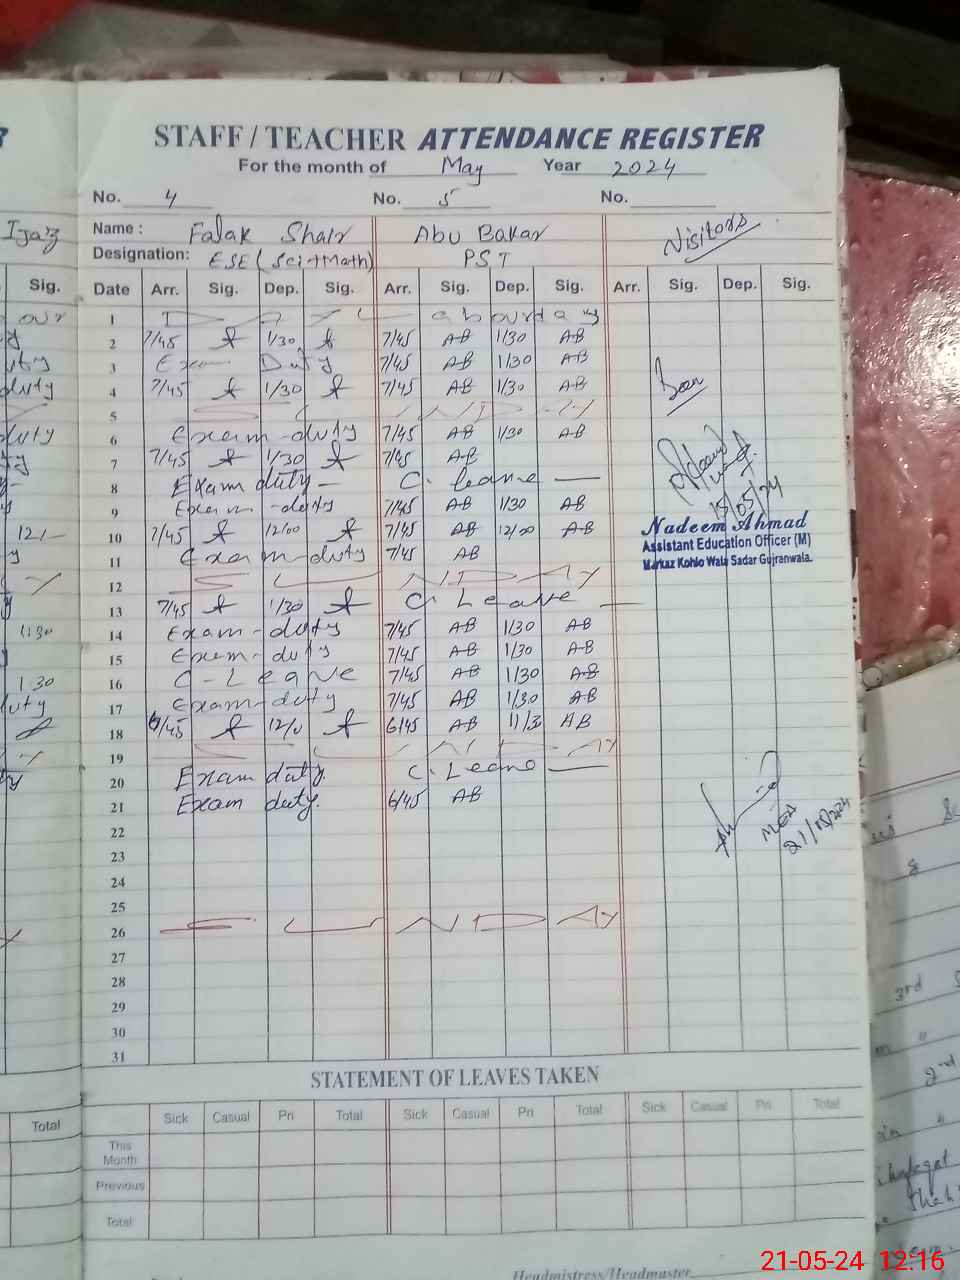 STAFF / TEACHER ATTENDANCE REGISTER
For the month of May Year 2024
No. 4 No. 5 No.
Ijaz Name : Falak Shair Abu Bakar Visitors
Designation: ESE (Sci+Math) PST
Sig. Date Arr. Sig. Dep. Sig. Arr. Sig. Dep. Sig. Arr. Sig. Dep. Sig.
1
2 7/45 1/30 7/45 AB 1/30 AB
3 Exam Duty 7/45 AB 1/30 AB
duty 4 7/45 1/30 7/45 AB 1/30 AB
5 SUNDAY
duty 6 Exam-duty 7/45 AB 1/30 AB
7 7/45 1/30 7/45 AB
8 Exam duty - C. leave
9 Exam-duty 7/45 AB 1/30 AB
10 7/45 12/00 7/45 AB 12/00 AB
11 Exam-duty 7/45 AB
12 SUNDAY
13 7/45 1/30 C. Leave
1:30 14 Exam-duty 7/45 AB 1/30 AB
15 Exam-duty 7/45 AB 1/30 AB
1:30 16 C-Leave 7/45 AB 1/30 AB
duty 17 Exam-duty 7/45 AB 1/30 AB
18 6/45 6/45 AB 11/3 AB
19 SUNDAY
20 Exam duty. C. Leave
21 Exam duty. 6/45 AB
22
23
24
25
26 SUNDAY
27
28
29
30
31
15/05/24
Nadeem Ahmad
Assistant Education Officer (M)
Markaz Kohlo Wala Sadar Gujranwala.
MEA
21/05/2024
STATEMENT OF LEAVES TAKEN
Total Sick Casual Pri Total Sick Casual Pri Total Sick Casual Pri Total
This Month
Previous
Total
Headmistress/Headmaster
8
3rd
2nd
21-05-24 12:16